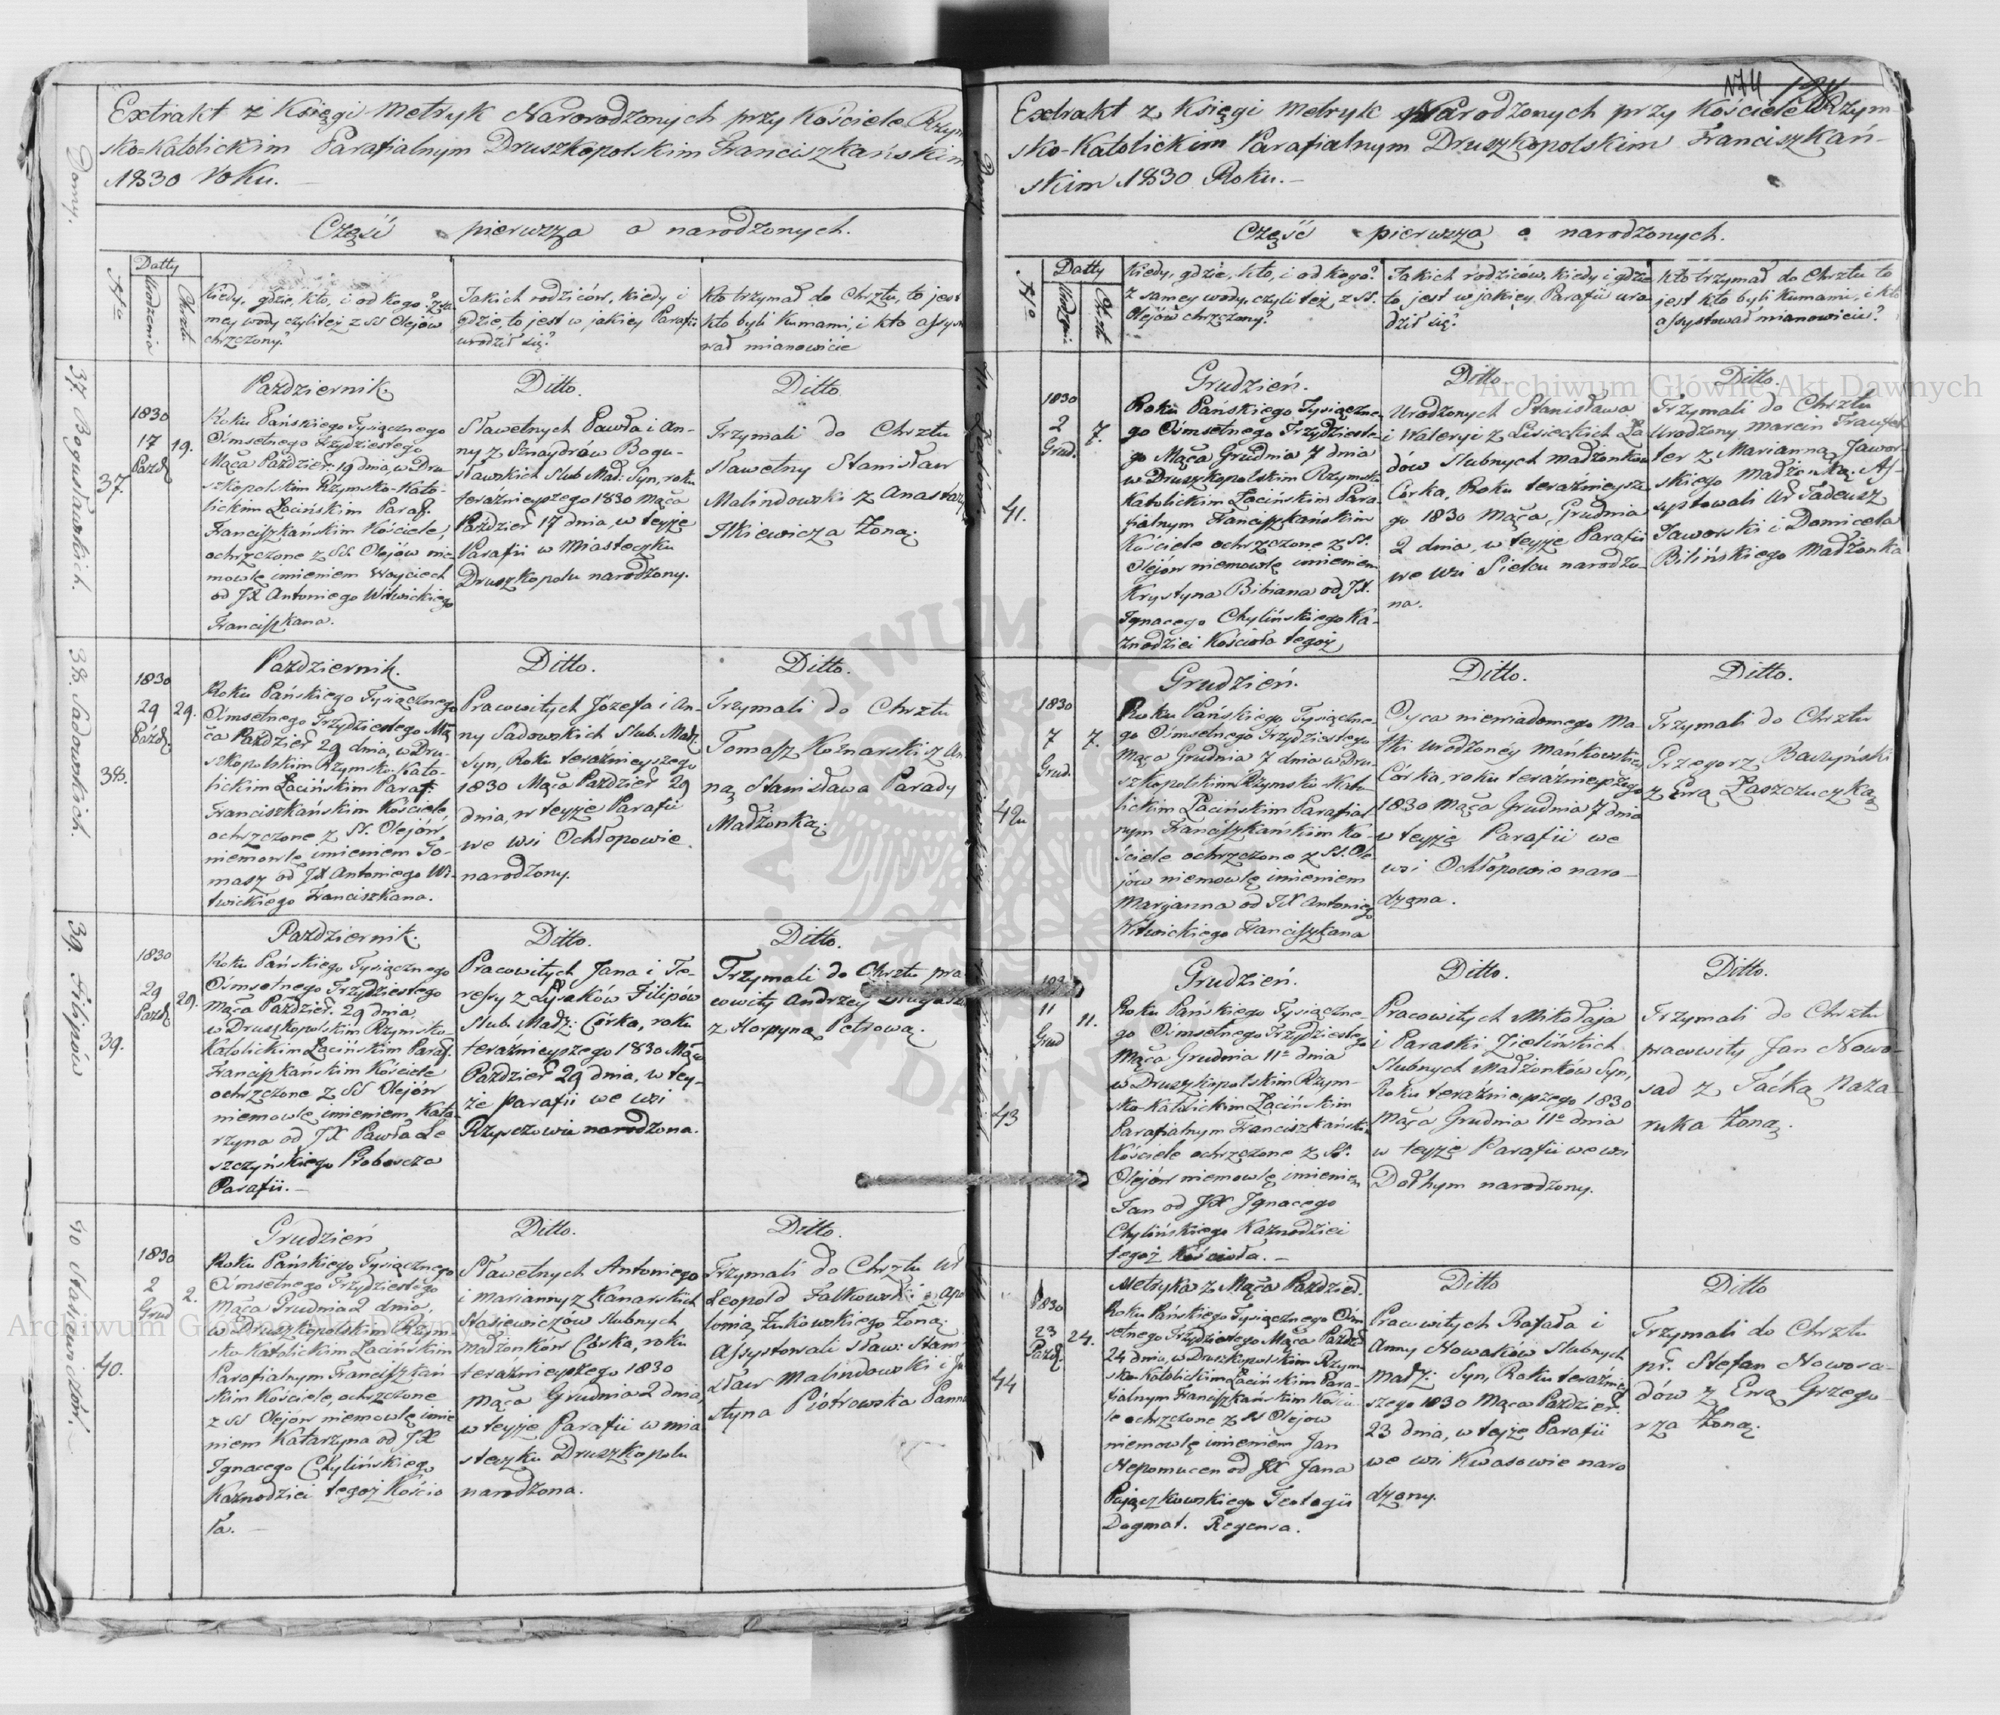 Extrakt z Księgi Metryk Narorodzonych przy Kościele Rzym
sko-Katolickim Parafialnym Druszkopolskim Franciszkańskim
1830 Roku.
Część pierwsza o narodzonych.
Domy.
No
Datty
Urodzenia
Chrztu
Kiedy, gdzie, kto, i od kogo? z sa
mey wody czyli też z SS Olejów
chrzczony?
Jakich rodziców, kiedy i
gdzie, to jest w jakiey Parafii
urodził się?
Kto trzymał do Chrztu, to jest
kto byli Kumami, i kto assysto
wał mianowicie
37 Bogusławskich.
37.
1830
17
Pazdź
19.
Pazdziernik.
Roku Pańskiego Tysiącznego
Osmsetnego Trzydziestego
Mąca Paździer. 19 dnia, w Dru
szkopolskim Rzymsko-Kato-
lickim Łacińskim Paraf.
Franciszkańskim Kościele,
ochrzczone z SS. Olejów nie
mowlę imieniem Woyciech
od JX Antoniego Witwickiego
Franciszkana.
Ditto.
Sławetnych Pawła i An-
ny z Sznaydrów Bogu-
sławskich Slub. Mał: Syn, roku
teraźnieyszego 1830 Mąca
Paździer 17 dnia, w teyże
Parafii w Miasteczku
Druszkopolu narodzony.
Ditto.
Trzymali do Chrztu
Sławetny Stanisław
Malindowski z Anastazyą
Ilkiewicza Żoną.
38. Sadowskich.
38.
1830
29
Pazdź
29.
Pazdziernik.
Roku Pańskiego Tysiącznego
Osmsetnego Trzydziestego Mą
ca Paździer 29 dnia, w Dru-
szkopolskim Rzymsko-Kato-
lickim Łacińskim Paraf:
Franciszkańskim Kościele,
ochrzczone z SS. Olejów,
niemowlę imieniem To-
masz od JX Antoniego Wi-
twickiego Franciszkana.
Ditto.
Pracowitych Józefa i An-
ny Sadowskich Slub. Małż
Syn, Roku teraźnieyszego
1830 Mąca Paździer 29
dnia, w teyże Parafii
we wsi Ochłopowie
narodzony.
Ditto.
Trzymali do Chrztu
Tomasz Koznarski z An
ną Stanisława Parady
Małżonką.
39. Filipów
39.
1830
29
Pazdź
29.
Pazdziernik.
Roku Pańskiego Tysiącznego
Osmsetnego Trzydziestego
Mąca Paździer. 29 dnia,
w Druszkopolskim Rzymsko-
Katolickim Łacińskim Paraf.
Franciszkańskim Kościele
ochrzczone z SS Olejów
niemowlę imieniem Kata-
rzyna od JX Pawła Le
szczyńskiego Proboscza
Parafii.
Ditto.
Pracowitych Jana i Te-
ressy z Łysaków Filipów
Slub. Małż: Córka, roku
teraźnieyszego 1830 Mąca
Paździer 29 dnia, w tey-
że parafii we wsi
Rzysczowie narodzona.
Ditto.
Trzymali do Chrztu pra
cowity Andrzey
z Horpyną Petrową.
40 Stasiewiczów.
40.
1830
2
Grud
2.
Grudzień
Roku Pańskiego Tysiącznego
Osmsetnego Trzydziestego
Mąca Grudnia 2 dnia,
w Druszkopolskim Rzym-
sko-Katolickim Łacińskim
Parafialnym Franciszkań
skim Kościele, ochrzczone
z SS Olejów niemowlę imie
niem Katarzyna od JX
Ignacego Chylińskiego
Kaznodziei tegoż Kościo
ła.
Ditto.
Sławetnych Antoniego
i Marianny z Kanarskich
Stasiewiczów Slubnych
Małżonków Córka, roku
teraźnieyszego 1830
Mąca Grudnia 2 dnia,
w teyże Parafii w mia
steczku Druszkopolu
narodzona.
Ditto.
Trzymali do Chrztu Wł
Leopold Falkowski z Apo
lonią Zukowskiego Żoną.
Assystowali Sław: Stani
sław Malindowski i Ju
styna Piotrowska Panna
174
Extrakt z Księgi Metryk Narodzonych przy Kościele Rzym-
sko-Katolickim Parafialnym Druszkopolskim Franciszkań-
skim 1830 Roku.
Część pierwsza o narodzonych.
Domy
No
Datty
Urodzeni
Chrzt
Kiedy, gdzie, kto, i od kogo?
z samey wody, czyli też z SS.
Olejów chrzczony?
Jakich rodziców, kiedy i gdzie
to, jest w jakiey Parafii uro
dził się?
Kto trzymał do Chrztu to
jest kto byli Kumami, i kto
assystował mianowicie?
41.
1830
2
Grud.
7.
Grudzień.
Roku Pańskiego Tysiączne-
go Osmsetnego Trzydzieste-
go Mąca Grudnia 7 dnia
w Druszkopolskim Rzymsko
Katolickim Łacińskim Para-
fialnym Franciszkańskim
Kościele ochrzczone z SS.
Olejów niemowlę imieniem
Krystyna Bibiana od JX.
Ignacego Chylińskiego Ka-
znodziei Kościoła tegoż
Ditto
Urodzonych Stanisława
i Waleryi z Lisieckich Ła
dów Slubnych Małżonków
Córka, Roku teraźnieysze
go 1830 Mąca, Grudnia
2 dnia, w teyże Parafii
we wsi Sielcu narodzo-
na.
Ditto.
Trzymali do Chrztu
Urodzony Marcin
ter z Marianną Jawor-
skiego Małżonką. As-
systowali Ur Tadeusz
Jaworski i Domicela
Bilińskiego Małżonka
42
1830
7
Grud.
7.
Grudzień.
Roku Pańskiego Tysiączne-
go Osmsetnego Trzydziestego
Mąca Grudnia 7 dnia w Dru-
szkopolskim Rzymsko Kato
lickim Łacińskim Parafial
nym Franciszkańskim Ko-
ściele ochrzczone z SS. Ole-
jów niemowlę imieniem
Maryanna od JX Antoniego
Witwickiego Franciszkana
Ditto.
Oyca niewiadomego Ma-
tki Urodzoney Mańkowskiey
Córka, roku teraźnieyszego
1830 Mąca Grudnia 7 dnia
w teyże Parafii we
wsi Ochłopowie naro-
dzona.
Ditto.
Trzymali do Chrztu
Grzegorz Baczyński
z Ewą Łaszczuczką
43
11
Grud
11.
Grudzień.
Roku Pańskiego Tysiączne-
go Osmsetnego Trzydziestego
Mąca Grudnia 11o dnia
w Druszkopolskim Rzym-
sko-Katolickim Łacińskim
Parafialnym Franciszkański
Kościele ochrzczone z SS.
Olejów niemowlę imieniem
Jan od JX Ignacego
Chylińskiego Kaznodziei
tegoż Kościoła.
Ditto.
Pracowitych Mikołaja
i Paraski Zielińskich
Slubnych Małżonków Syn,
Roku teraźnieyszego 1830
Mąca Grudnia 11o dnia
w teyże Parafii we wsi
Dołhym narodzony.
Ditto.
Trzymali do Chrztu
pracowity Jan Nowo-
sad z Jacką Naza-
ruka Żoną.
44
1830
23
Pazdź.
24.
Metryka z Mąca Pazdzied.
Roku Pańskiego Tysiącznego Osm
setnego Trzydziestego Mąca Paźdz
24 dnia, w Druszkopolskim Rzym
sko-Katolickim Łacińskim Para-
fialnym Franciszkańskim Kości
le ochrzczone z SS Olejow
niemowlę imieniem Jan
Nepomucen od JX Jana
Pajączkowskiego Teologii
Dogmat. Regensa.
Ditto
Pracowitych Rafała i
Anny Nowaków Slubnych
Małż: Syn, Roku teraźniey
szego 1830 Mąca Paździer.
23 dnia, w tejże Parafii
we wsi Kwasowie naro
dzony.
Ditto
Trzymali do Chrztu
pr. Stefan Nowosa-
dów z Ewą Grzego-
rza Żoną.
Archiwum Główne Akt Dawnych
Archiwum Główne Akt Dawnych